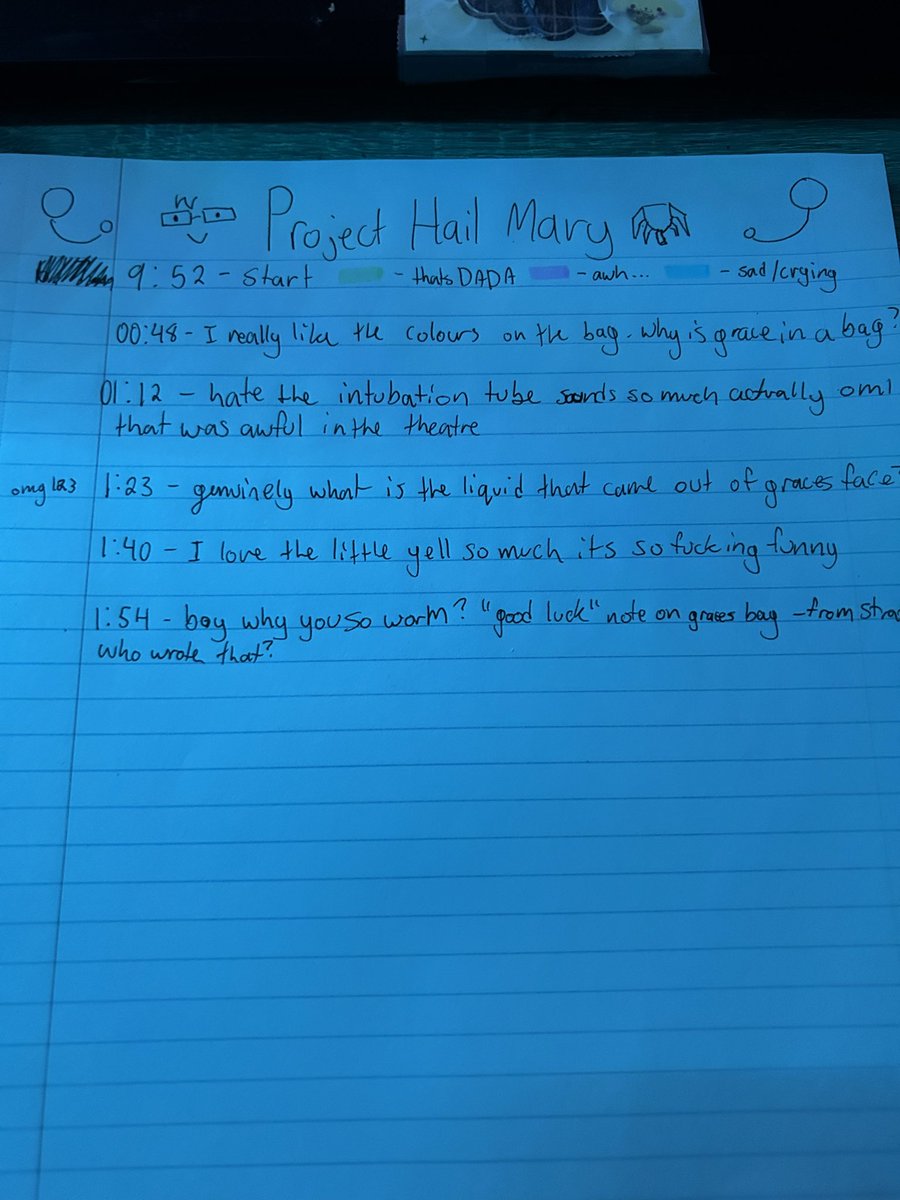 Project Hail Mary
9:52 - start - thats DADA - awh... - sad/crying
00:48 - I really like the colours on the bag. why is grace in a bag?
01:12 - hate the intubation tube sounds so much actually oml
that was awful in the theatre
omg 123 1:23 - genuinely what is the liquid that came out of graces face?
1:40 - I love the little yell so much its so fucking funny
1:54 - boy why you so worm? "good luck" note on graces bag - from
who wrote that?